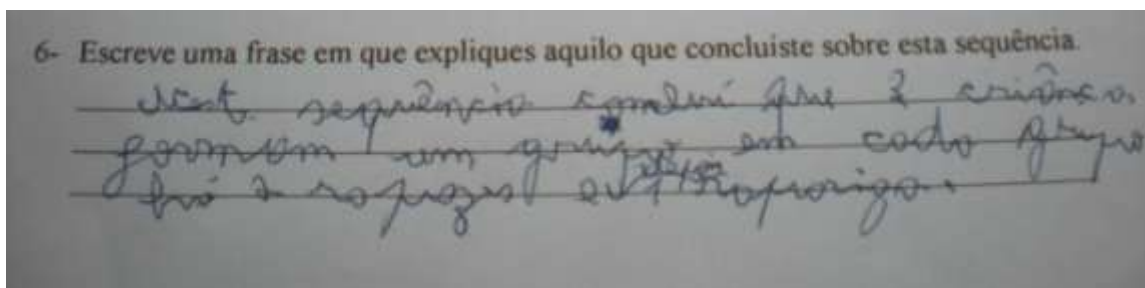 6- Escreve uma frase em que expliques aquilo que concluiste sobre esta sequência.
Nest sequência conclui que 3 criança
formam um grupo em cada grupo
há 2 rapazes e 1 rapariga.